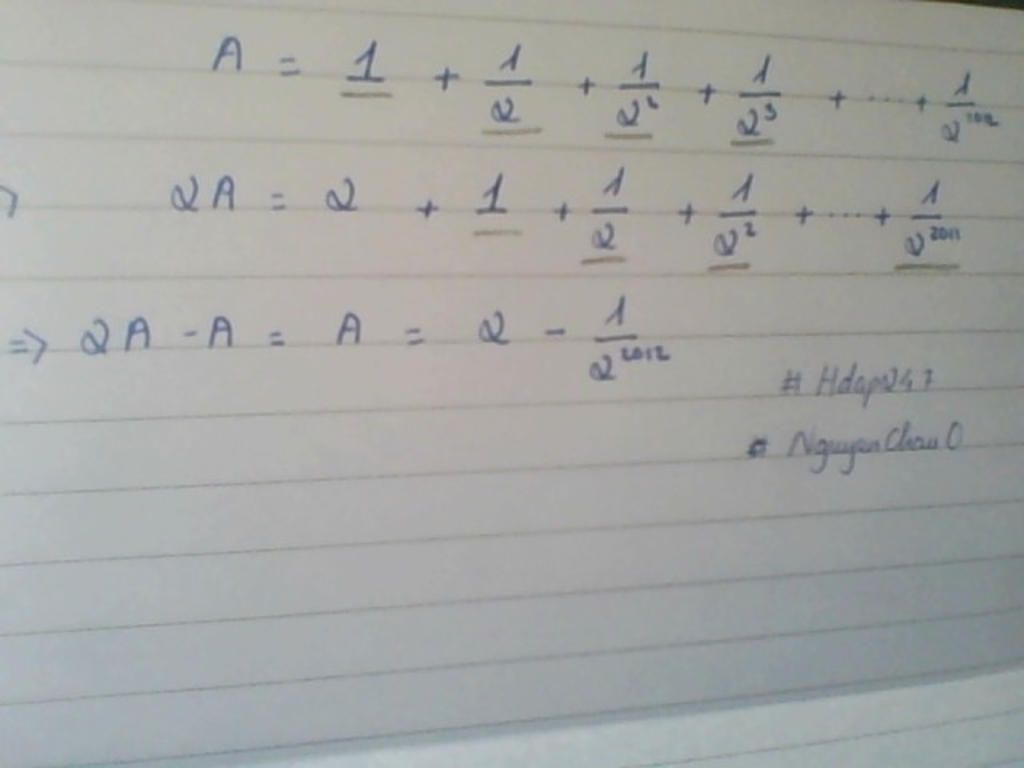 A = 1 + 1/2 + 1/2² + 1/2³ + ... + 1/2²⁰¹²
2A = 2 + 1 + 1/2 + 1/2² + ... + 1/2²⁰¹¹
=> 2A - A = A = 2 - 1/2²⁰¹²
# Hdap247
# NguyenChau0